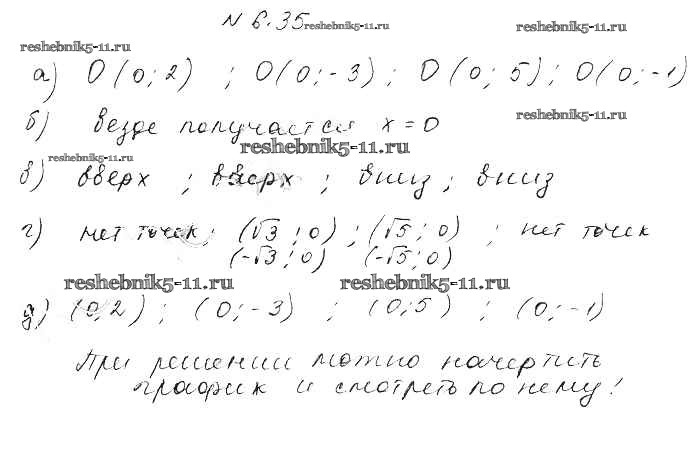 N 6.35 reshebnik5-11.ru reshebnik5-11.ru
reshebnik5-11.ru
а) О (0; 2) ; О(0; -3) ; О (0; 5) ; О(0; -1)
б) везде получается x = 0 reshebnik5-11.ru
reshebnik5-11.ru
reshebnik5-11.ru
в) вверх ; вверх ; вниз ; вниз
г) нет точек; (√3 ; 0) ; (√5 ; 0) ; нет точек
(-√3 ; 0) (-√5 ; 0)
reshebnik5-11.ru reshebnik5-11.ru
д) (0; 2) ; (0; -3) ; (0; 5) ; (0; -1)
При решении можно начертить
график и смотреть по нему!